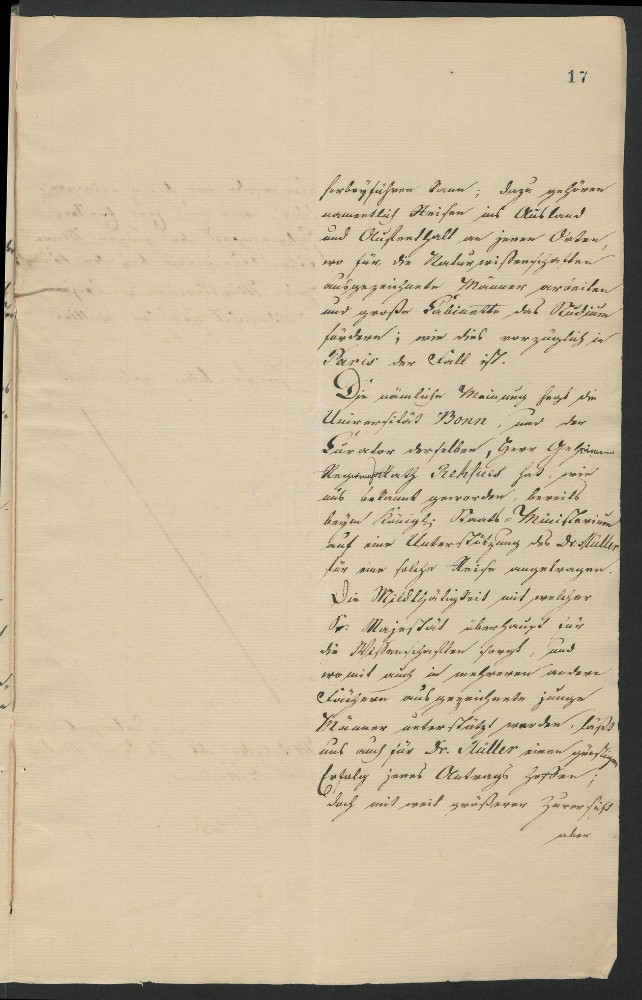 17
herbeyführen kann; dazu gehören
namentlich Reisen ins Ausland
und Aufenthalt an jenen Orten,
wo für die Naturwissenschaften
ausgezeichnete Männer arbeiten
und große Kabinette das Studium
fördern; wie dies vorzüglich in
Paris der Fall ist.
Die nämliche Meinung hegt die
Universität Bonn, und der
Curator derselben, Herr Geheime
Regierungs Rath Rehfues hat, wie
uns bekannt geworden, bereits
beym Königl: Staats-Ministerium
auf eine Unterstützung des Dr. Müller
für eine solche Reise angetragen.
Die Mildthätigkeit mit welcher
Sr: Majestät überhaupt für
die Wissenschaften sorgt, und
womit auch in mehreren andern
Fächern ausgezeichnete junge
Männer unterstützt werden, läßt
uns auch für Dr. Müller einen günstigen
Erfolg jenes Antrags hoffen;
doch mit weit größerer Zuversicht
aber